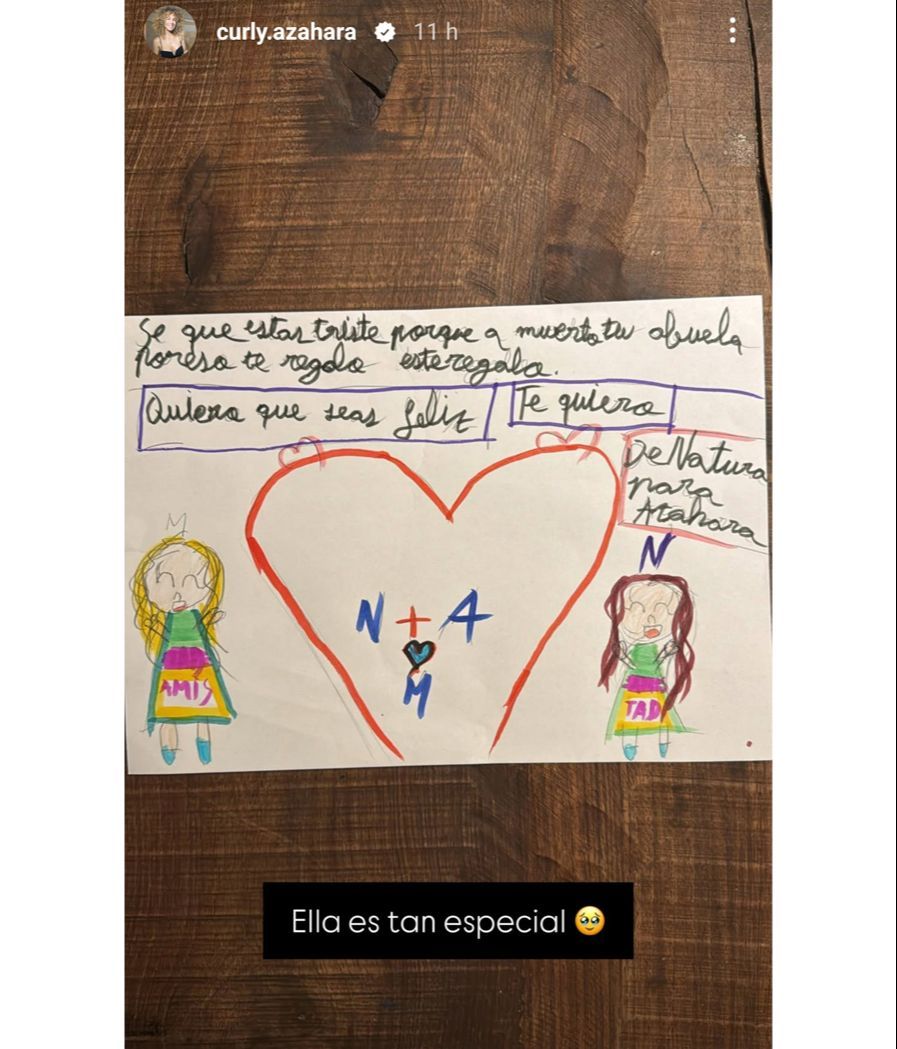 curly.azahara 11 h
Se que estas triste porque a muerto tu abuela
poreso te regalo este regalo.
Quiero que seas feliz
Te quiero
De Natura
para
Atahara
M
N
N + A
M
AMIS
TAD
Ella es tan especial 🥹